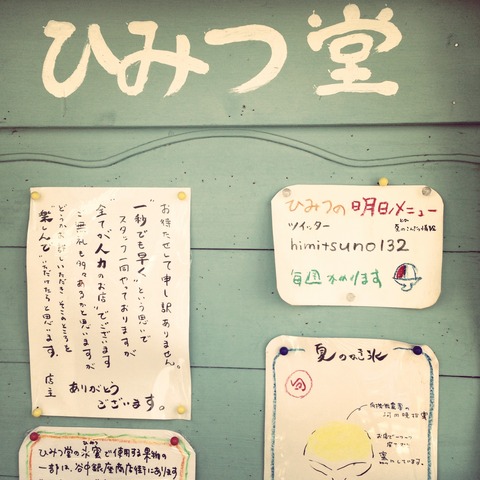 ひみつ堂
お待たせして申し訳ありません。
"一秒でも早く"という思いで
スタッフ一同やっておりますが
"全てが人力のお店"でございます
ご無礼も多々あるかと思いますが
どうかお許しいただき、そこのところを
楽しんでいただけたらと思います。
店主
ありがとう
ございます。
ひみつの明日メニュー
ツイッター
himitsuno132
毎週かわります
夏のかき氷
ひみつ堂の氷蜜で使用する果物の
一部は、谷中銀座商店街にあります